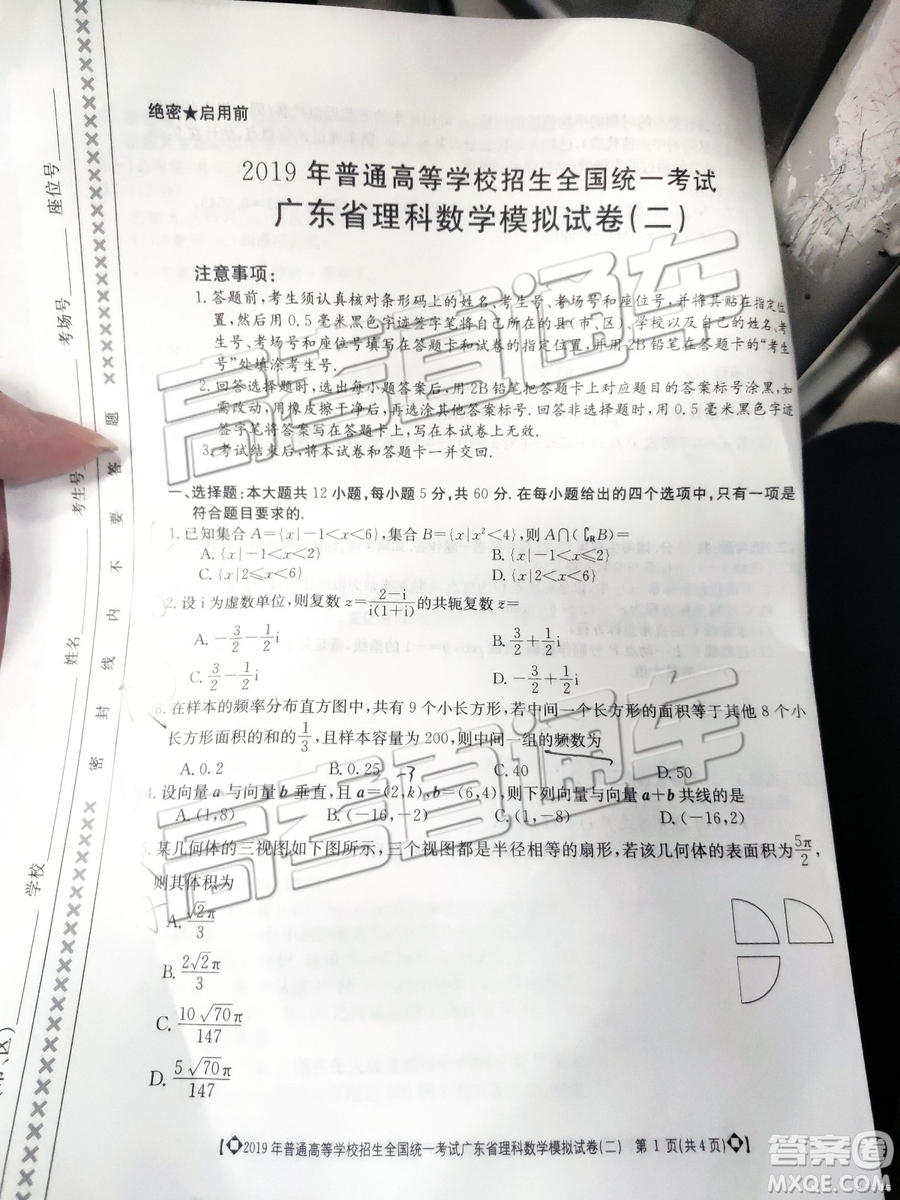 绝密★启用前
2019年普通高等学校招生全国统一考试
广东省理科数学模拟试卷(二)
注意事项:
1.答题前,考生须认真核对条形码上的姓名、考生号、考场号和座位号,并将其贴在指定
位置,然后用0.5毫米黑色字迹签字笔将自己所在的县(市、区)、学校以及自己的姓名、考
生号、考场号和座位号填写在答题卡和试卷的指定位置,并用2B铅笔在答题卡的“考生
号”处填涂考生号.
2.回答选择题时,选出每小题答案后,用2B铅笔把答题卡上对应题目的答案标号涂黑,如
需改动,用橡皮擦干净后,再选涂其他答案标号.回答非选择题时,用0.5毫米黑色字迹
签字笔将答案写在答题卡上,写在本试卷上无效.
3.考试结束后,将本试卷和答题卡一并交回.
一、选择题:本大题共12小题,每小题5分,共60分.在每小题给出的四个选项中,只有一项是
符合题目要求的.
1.已知集合A={x|-1<x<6},集合B={x|x²<4},则A∩(∁RB)=
A.{x|-1<x<2} B.{x|-1<x≤2}
C.{x|2≤x<6} D.{x|2<x<6}
2.设i为虚数单位,则复数z=(2-i)/(i(1+i))的共轭复数z=
A.-3/2-1/2i B.3/2+1/2i
C.3/2-1/2i D.-3/2+1/2i
3.在样本的频率分布直方图中,共有9个小长方形,若中间一个长方形的面积等于其他8个小
长方形面积的和的1/3,且样本容量为200,则中间一组的频数为
A.0.2 B.0.25 C.40 D.50
4.设向量a与向量b垂直,且a=(2,k),b=(6,4),则下列向量与向量a+b共线的是
A.(1,8) B.(-16,-2) C.(1,-8) D.(-16,2)
5.某几何体的三视图如下图所示,三个视图都是半径相等的扇形,若该几何体的表面积为5π/2,
则其体积为
A.√2π/3
B.2√2π/3
C.10√70π/147
D.5√70π/147
【2019年普通高等学校招生全国统一考试广东省理科数学模拟试卷(二) 第1页(共4页)】
座位号
考场号
考生号
姓名
学校
密 封 线 内 不 要 答 题
高考直通车
高考直通车
答案圈
MXQE.COM